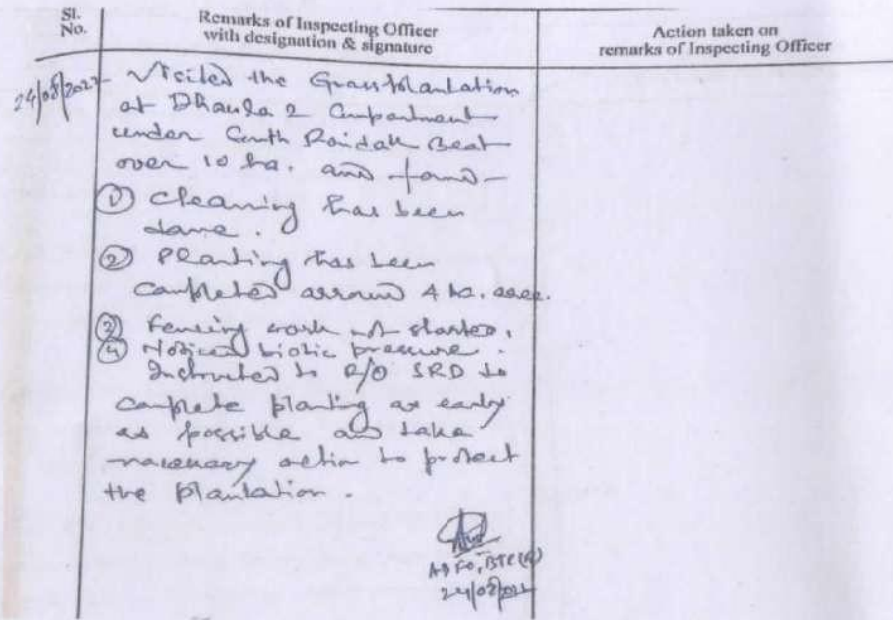 Sl. No.
Remarks of Inspecting Officer
with designation & signature
Action taken on
remarks of Inspecting Officer
24/08/2022 Visited the Grass Plantation
at Dhaula 2 Compartment
under South Raidak Beat
over 10 ha. and found-
① Cleaning has been
done.
② Planting has been
completed arround 4 ha. area.
③ Fencing work not started.
④ Noticed biotic pressure.
Instructed to R/O SRD to
complete planting as early
as possible and take
necessary action to protect
the plantation.
ADFO, BTR(E)
24/08/2022